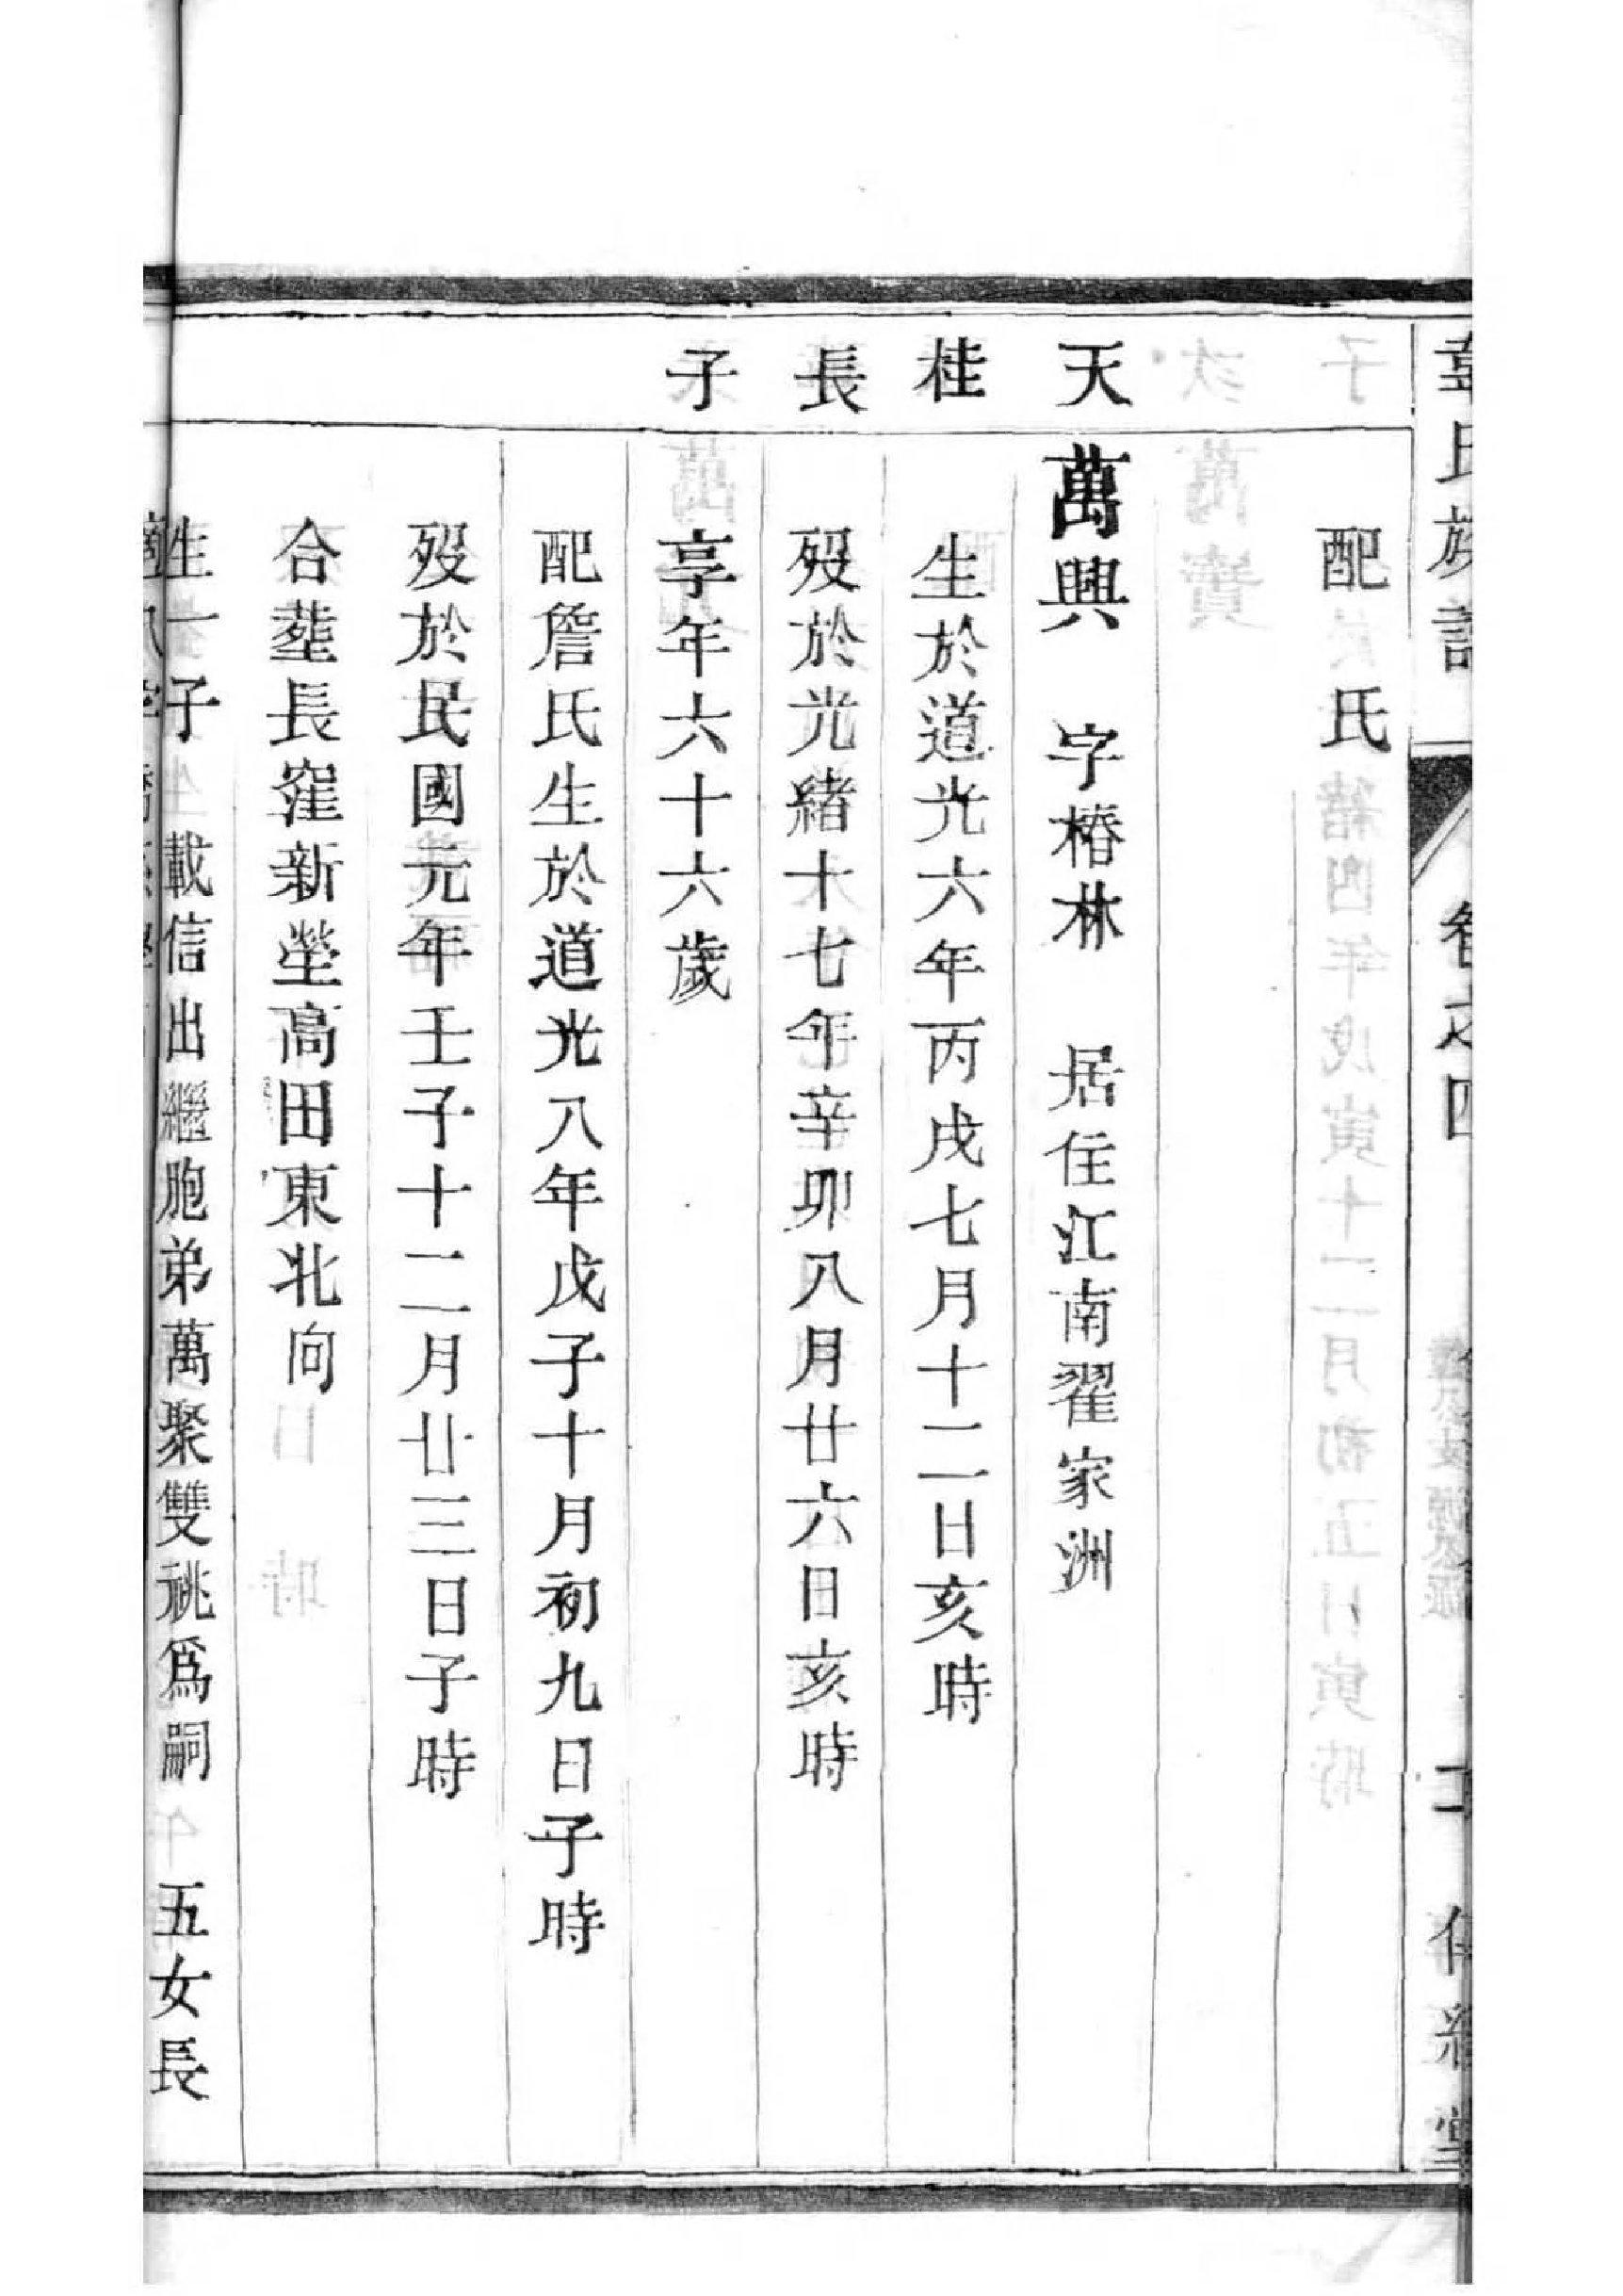 氏族譜
卷之四
配　氏
天桂長子
萬興　字椿林　居住江南翟家洲
生於道光六年丙戌七月十二日亥時
歿於光緒十七年辛卯八月廿六日亥時
享年六十六歲
配詹氏生於道光八年戊子十月初九日子時
歿於民國元年壬子十二月廿三日子時
合塟長窪新塋高田東北向
生一子　載信出繼胞弟萬聚雙祧爲嗣　五女長